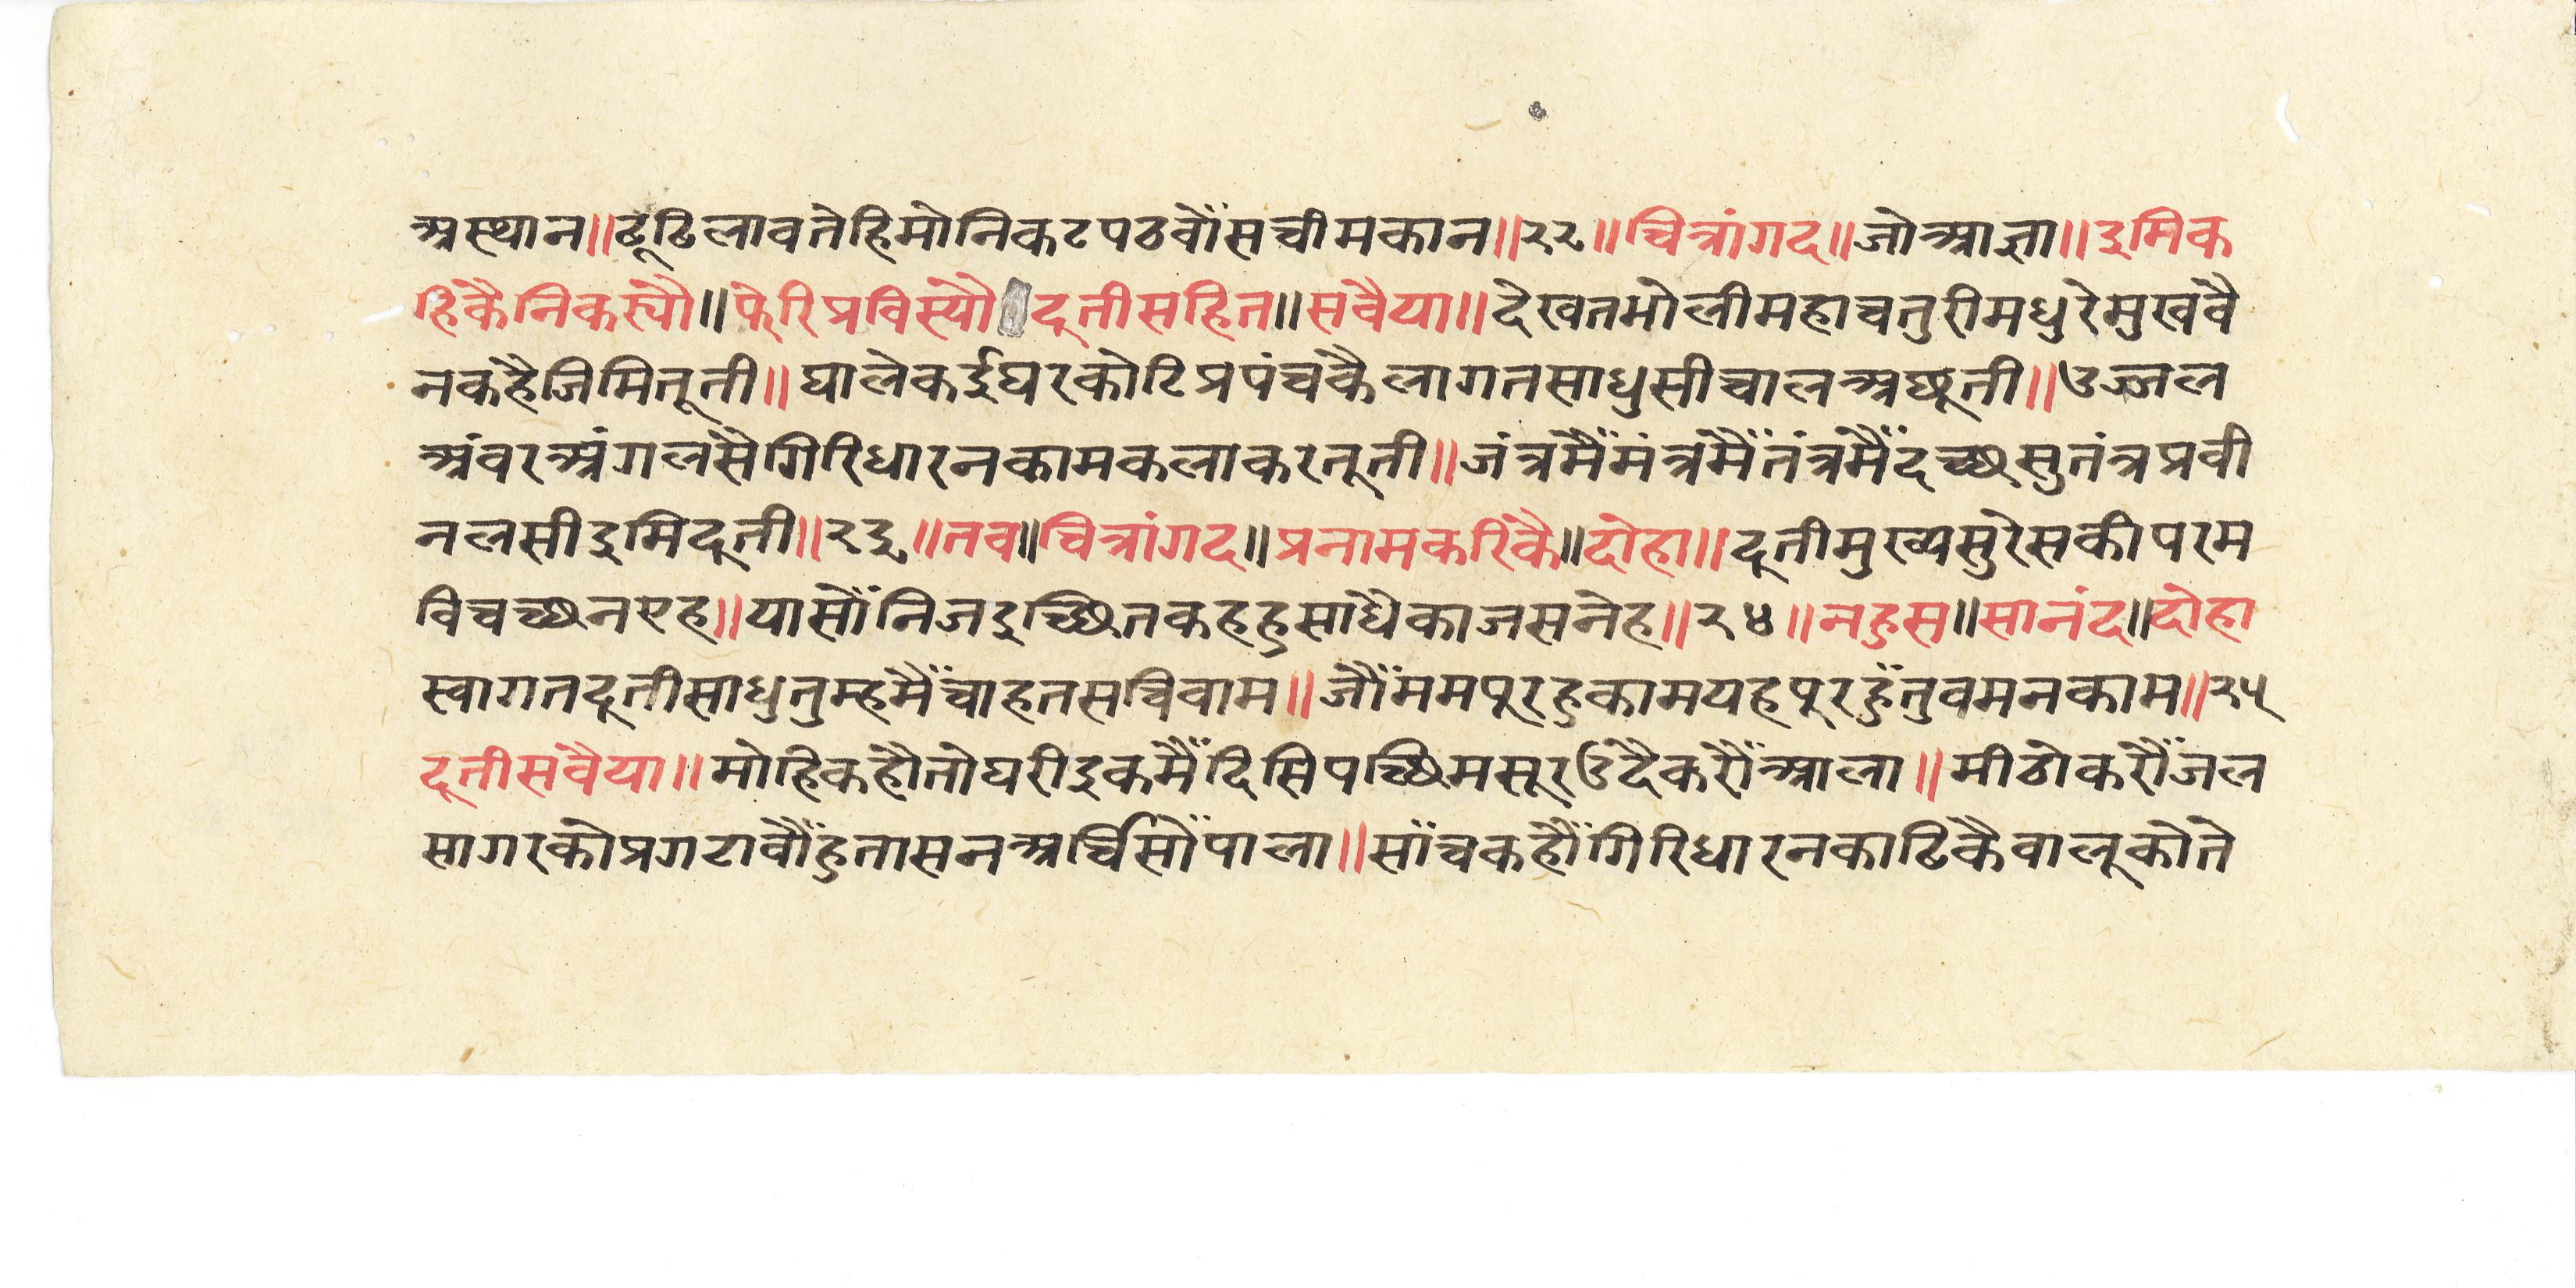 अस्थान॥ढूढिलावतेहिमोनिकटपठवौंसचीमकान॥२२॥चित्रांगद॥जोआज्ञा॥इमिक
हिकैनिकस्यौ॥फेरिप्रविस्यौदूतीसहित॥सवैया॥देखतभोलीमहाचतुरीमधुरेमुखवै
नकहैजिमितूती॥घालेकईघरकोटिप्रपंचकैलागतसाधुसीचालअछूती॥उज्जल
अंवरअंगलसैगिरिधारनकामकलाकरतूती॥जंत्रमैंमंत्रमैंतंत्रमैंदच्छसुतंत्रप्रवी
नलसीइमिदूती॥२३॥तव॥चित्रांगद॥प्रनामकरिकै॥दोहा॥दूतीमुख्यसुरेसकीपरम
विचच्छनएह॥यासौंनिजइच्छितकहहुसाधैकाजसनेह॥२४॥नहुस॥सानंद॥दोहा
स्वागतदूतीसाधुतुम्हमैंचाहतसचिवाम॥जौंममपूरहुकामयहपूरहुँतुवमनकाम॥२५
दूतीसवैया॥मोहिकहौतोघरीइकमैंदिसिपच्छिमसूरउदैकरौंआला॥मीठोकरौंजल
सागरकोप्रगटावौंहुतासनअर्चिसौंपाला॥सांचकहौंगिरिधारनकाढिकैवालूकोते